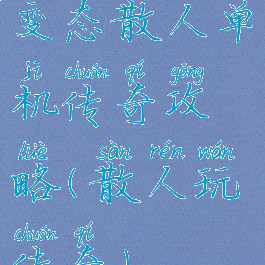 变态散人单
jī chuán qí gōng
机传奇攻
lüè sàn rén wán
略(散人玩
chuán qí
传奇)